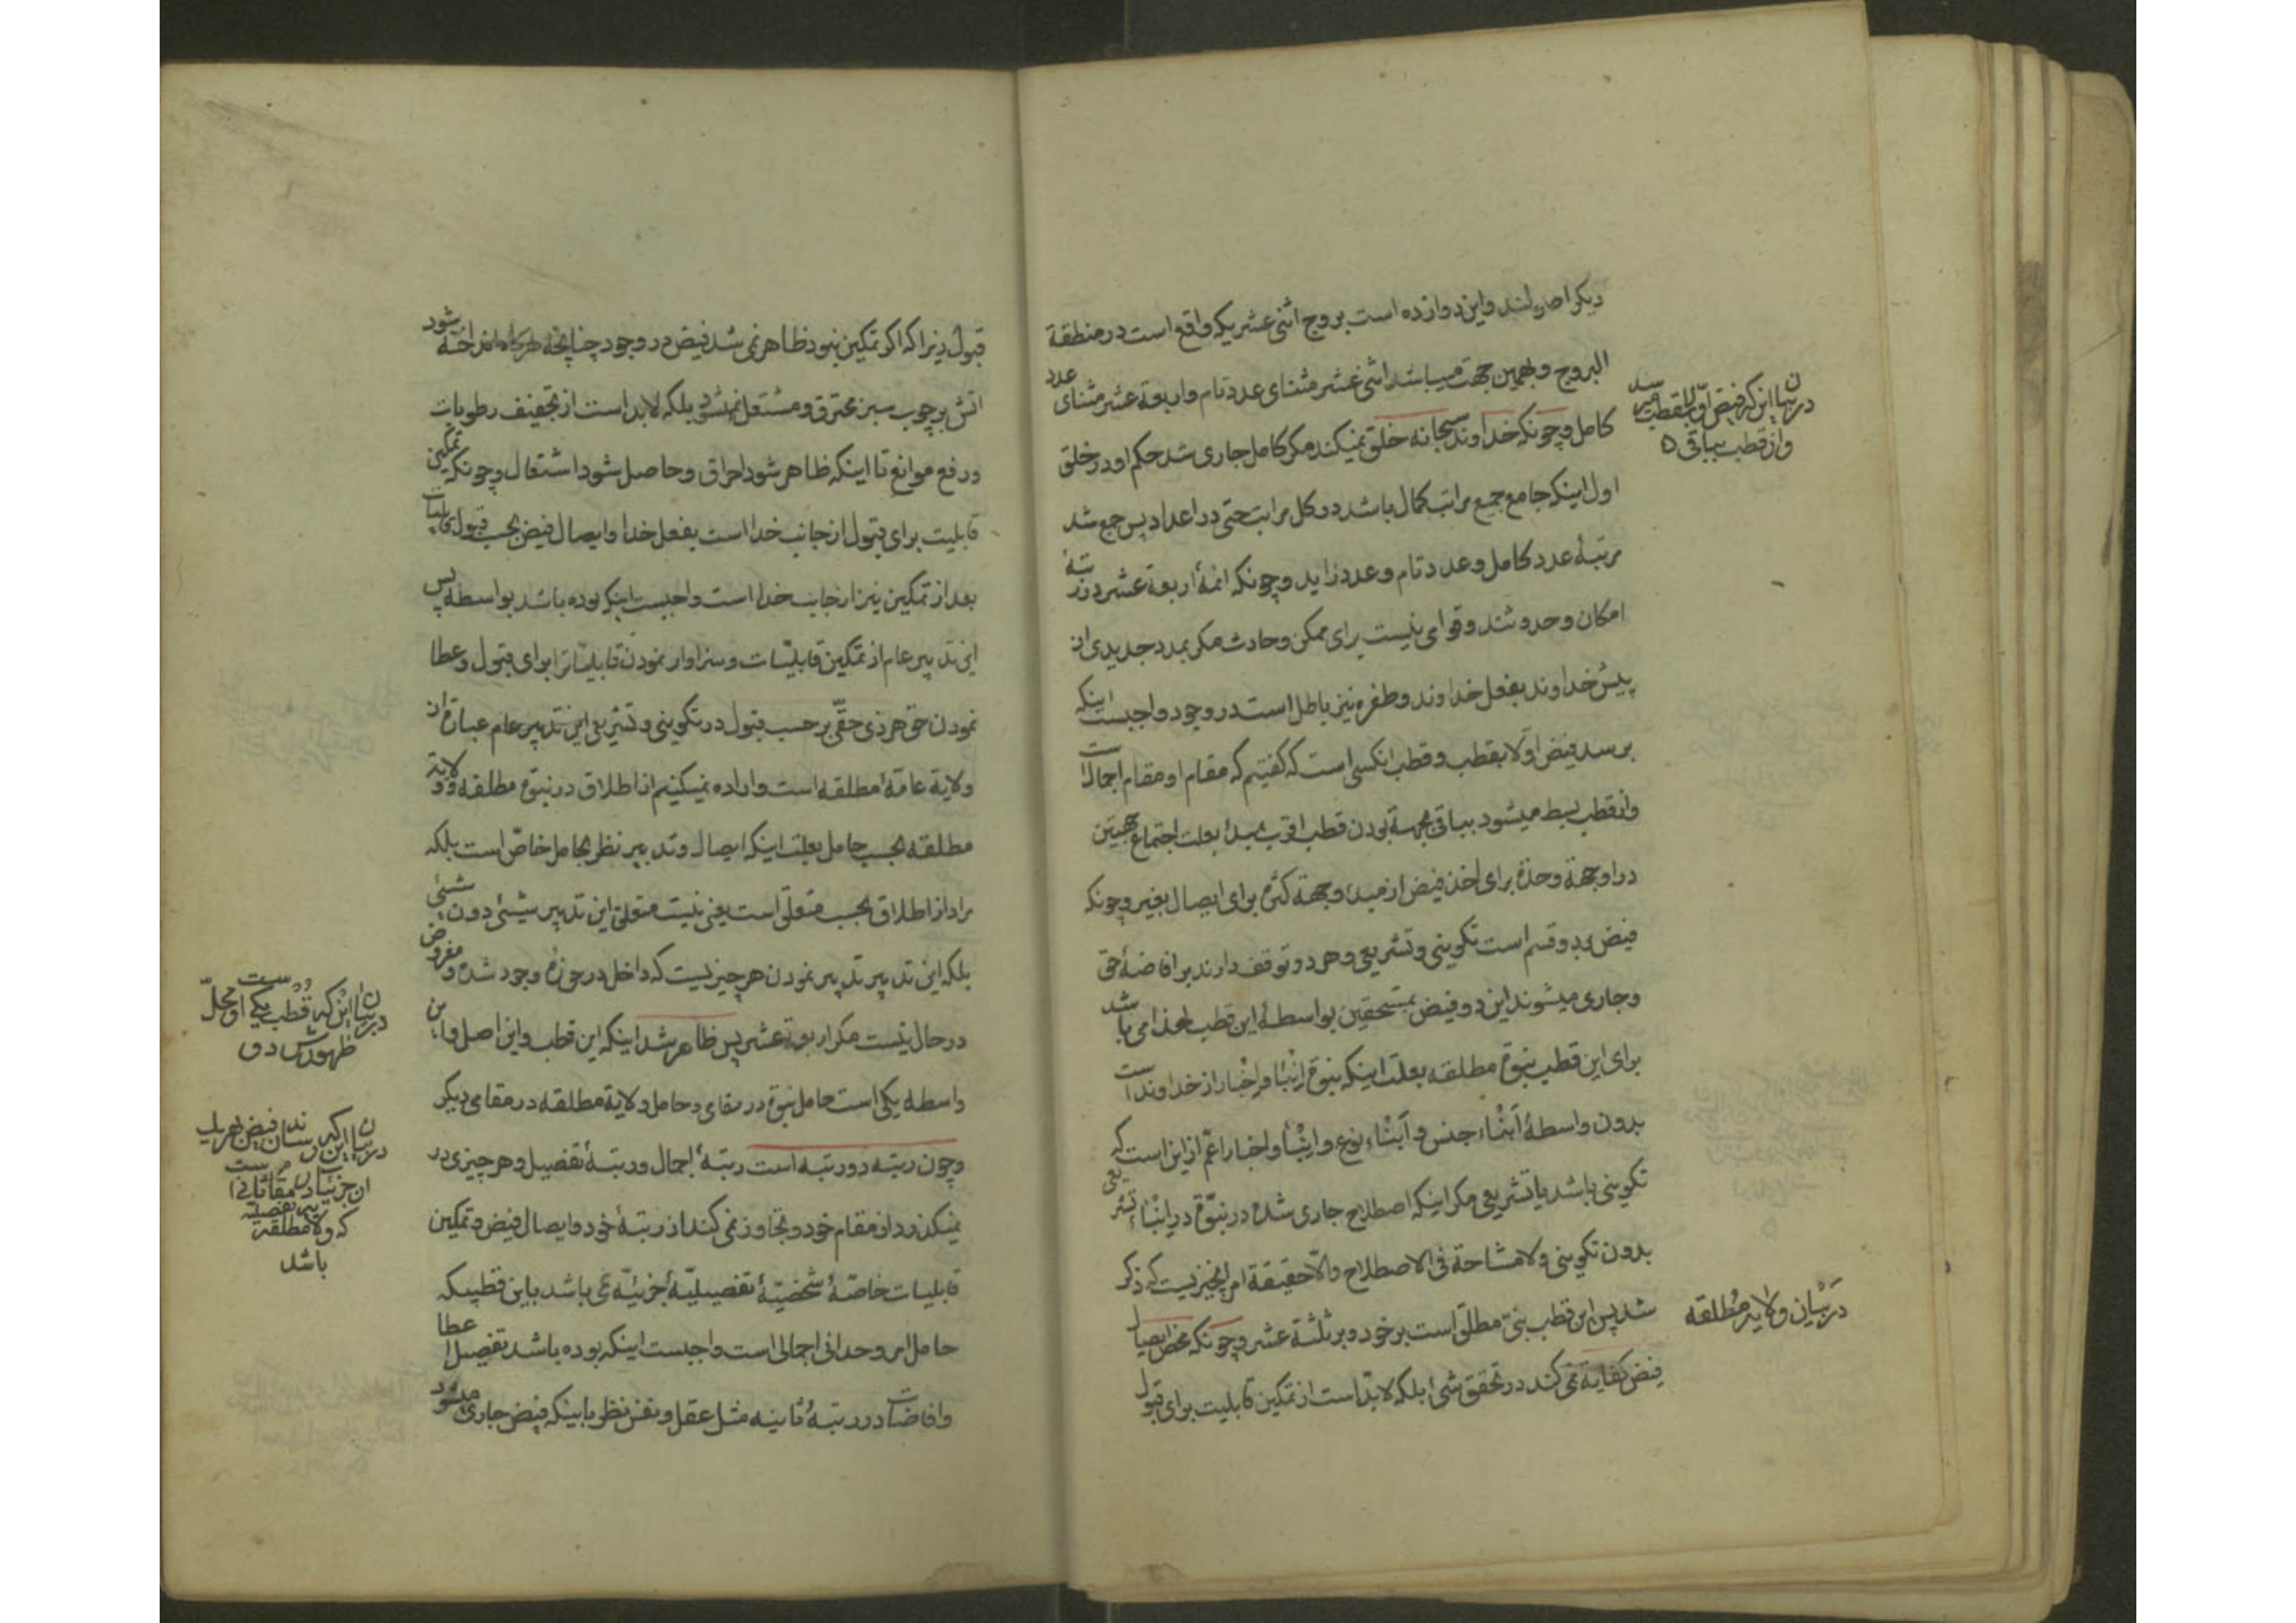 دیکر اصل لند واین دوازده است بروج اثنی عشر یکه واقع است در منطقة
البروج وبهمین جهت میباشد اثنی عشر مثنای عدد تام واربعة عشر مثنای عدد
کامل وچونکه خداوند سبحانه خلق نمیکند مکر کامل جاری شد حکم او در خلق
اول اینکه جامع جمیع مراتب کمال باشد در کل مراتب حتی در اعداد پس جمع شد
مرتبهٔ عدد کامل وعدد تام وعدد زاید وچونکه ائمهٔ اربعة عشر در رتبهٔ
امکان وحدوثند وقوامی نیست برای ممکن وحادث مکر بمدد جدیدی از
پیش خداوند بفعل خداوند وطفره نیز باطل است در وجود واجبست اینکه
برسد فیض اولا بقطب وقطب انکسی است که کفتیم که مقام او مقام اجمال است
واز قطب بسط میشود بباقی بجهة بودن قطب اقرب بمبدا بعلت اجتماع جهتین
در او جهة وحدة برای اخذ فیض از مبدء وجهة کثرة برای ایصال بغیر وچونکه
فیض بر دو قسم است تکوینی وتشریعی وهر دو توقف دارند بر افاضهٔ حق
وجاری میشوند این دو فیض بمستحقین بواسطهٔ این قطب لهذا می باشد
برای این قطب نبوة مطلقه بعلت اینکه نبوة اِنْباء واِخْبار از خداوند است
بدون واسطهٔ اَبْناء جنس و اَبْناء نوع واِنْباء واخبار اعمّ از این است که
تکوینی باشد یا تشریعی مکر اینکه اصطلاح جاری شده در نبوّة در اِنْباء تشریعی
بدون تکوینی ولا مشاحة فی الاصطلاح والّا حقیقة امر انچیزیست که ذکر
شد پس این قطب نبیّ مطلق است بر خود وبر ثلثة عشر وچونکه محض ایصال
فیض کفایة نمی کند در تحقق شیٔ بلکه لابدّ است از تمکین قابلیت برای قبول
در بیان این که فیض اولا بقطب میرسد
واز قطب بباقی ه
در بَیْان ولایه مُطلقه
قبول زیرا که اکر تمکین نبود ظاهر نمی شد فیض در وجود چنانچه هرکاه انداخته شود
اتش بر چوب سبز محترق ومشتعل نمیشود بلکه لابد است از تجفیف رطوبات
ورفع موانع تا اینکه ظاهر شود احراق وحاصل شود اشتعال وچونکه تمکین
قابلیت برای قبول از جانب خدا است بفعل خدا وایصال فیض بحسب قبول قابلیات
بعد از تمکین نیز از جانب خدا است واجبست اینکه بوده باشد بواسطه پس
این تدبیر عام از تمکین قابلیّات وسزاوار نمودن قابلیّاترا برای قبول وعطا
نمودن حق هر ذی حقّی بر حسب قبول در تکوینی وتشریعی این تدبیر عام عبارة از
ولایة عامّهٔ مطلقه است واراده نمیکنیم از اطلاق در نبوة مطلقه وولایة
مطلقه بحسب حامل بعلت اینکه ایصال وتدبیر نظر بحامل خاصّ است بلکه
مراد از اطلاق بحسب متعلق است یعنی نیست متعلق این تدبیر شیئی دون شیئی
بلکه این تدبیر تدبیر نمودن هر چیزیست که داخل در حوزهٔ وجود شده ومفروض
در حال نیست مکر اربعة عشر پس ظاهر شد اینکه این قطب واین اصل واین
واسطه یکی است حامل نبوة در مقامی وحامل ولایة مطلقه در مقامی دیکر
وچون رتبه دو رتبه است رتبهٔ اجمال ورتبهٔ تفصیل وهر چیزی در
نمیکذرد از مقام خود وتجاوز نمی کند از رتبهٔ خود وایصال فیض وتمکین
قابلیات خاصّهٔ شخصیّهٔ تفصیلیّهٔ جزئیّه نمی باشد باین قطبیکه
حامل امر وحدانی اجمالی است واجبست اینکه بوده باشد تفصیل اعطا
وافاضات در رتبهٔ ثانیه مثل عقل ونفس نظر باینکه فیض جاری میشود
در بیان این که قُطب یکی است او محلّ
ظهورش دو
در بیان این که رساندن فیض بهر یک
ان جزئیات در مقام ثانی است
تفصیلیه
که ولایة مطلقه
باشد